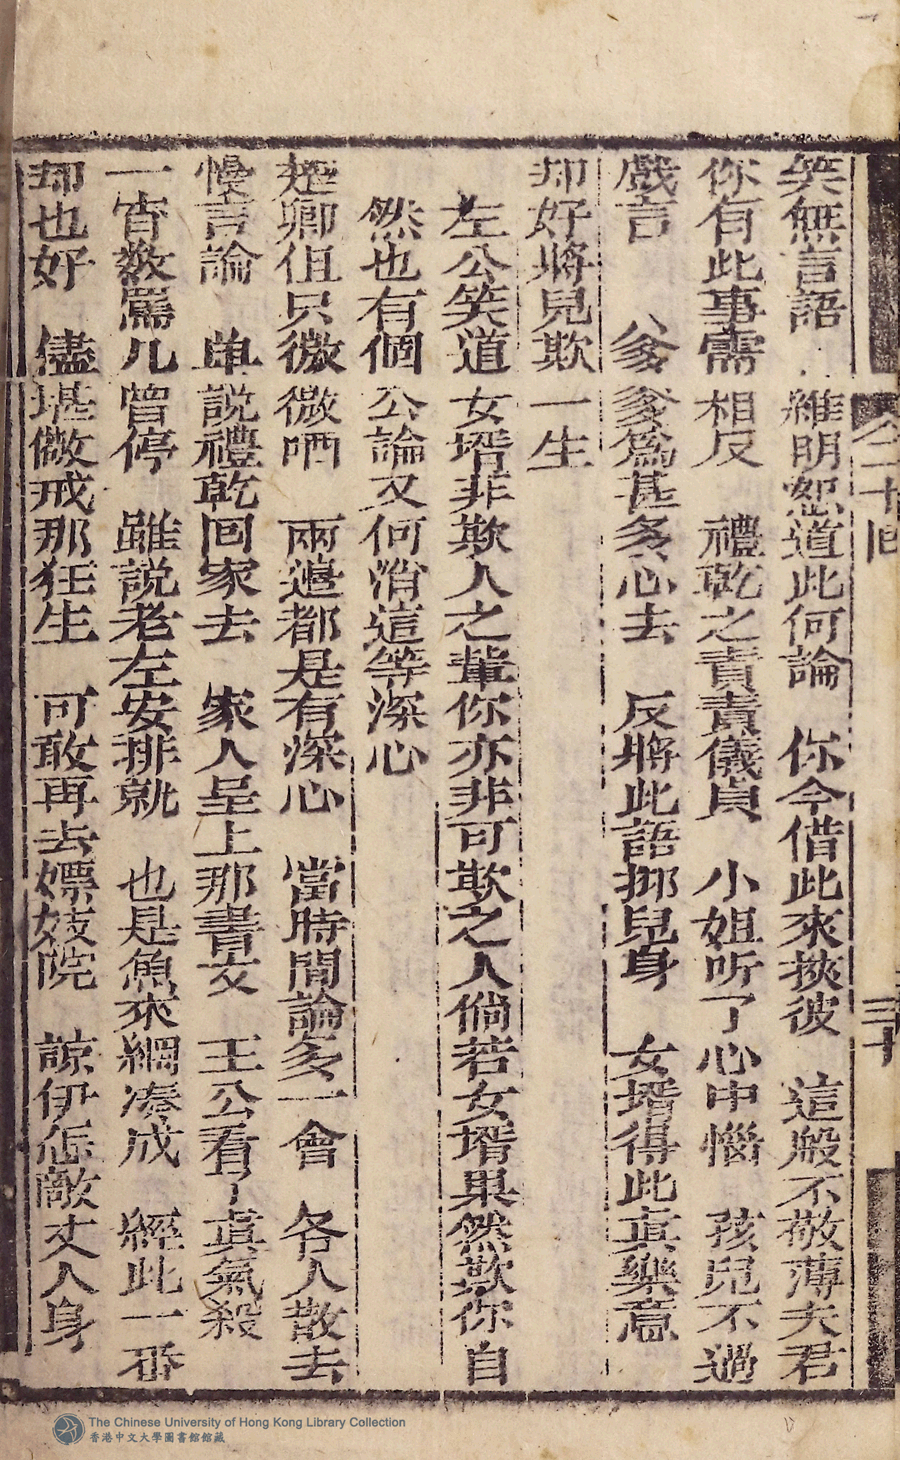 笑無言語　維明恕道此何論　你今借此來挾彼　這般不敬薄夫君
你有此事需相反　禮乾之責責儀貞　小姐听了心中惱　孩兒不過
戲言　爹爹爲甚多心去　反將此語挪兒身　女壻得此真樂意
却好將兒欺一生
左公笑道女壻非欺人之輩你亦非可欺之人倘若女壻果然欺你自
然也有個公論又何消這等深心
楚卿伹只微微哂　兩邉都是有深心　當時閒論多一會　各人散去
慢言論　單說禮乾回家去　家人呈上那書文　王公看了真氣殺
一宵数罵几曾停　雖説老左安排就　也是魚來網凑成　經此一番
却也好　儘堪儆戒那狂生　可敢再去嫖妓院　諒伊怎敵丈人身
二十回
三十
The Chinese University of Hong Kong Library Collection
香港中文大學圖書館館藏